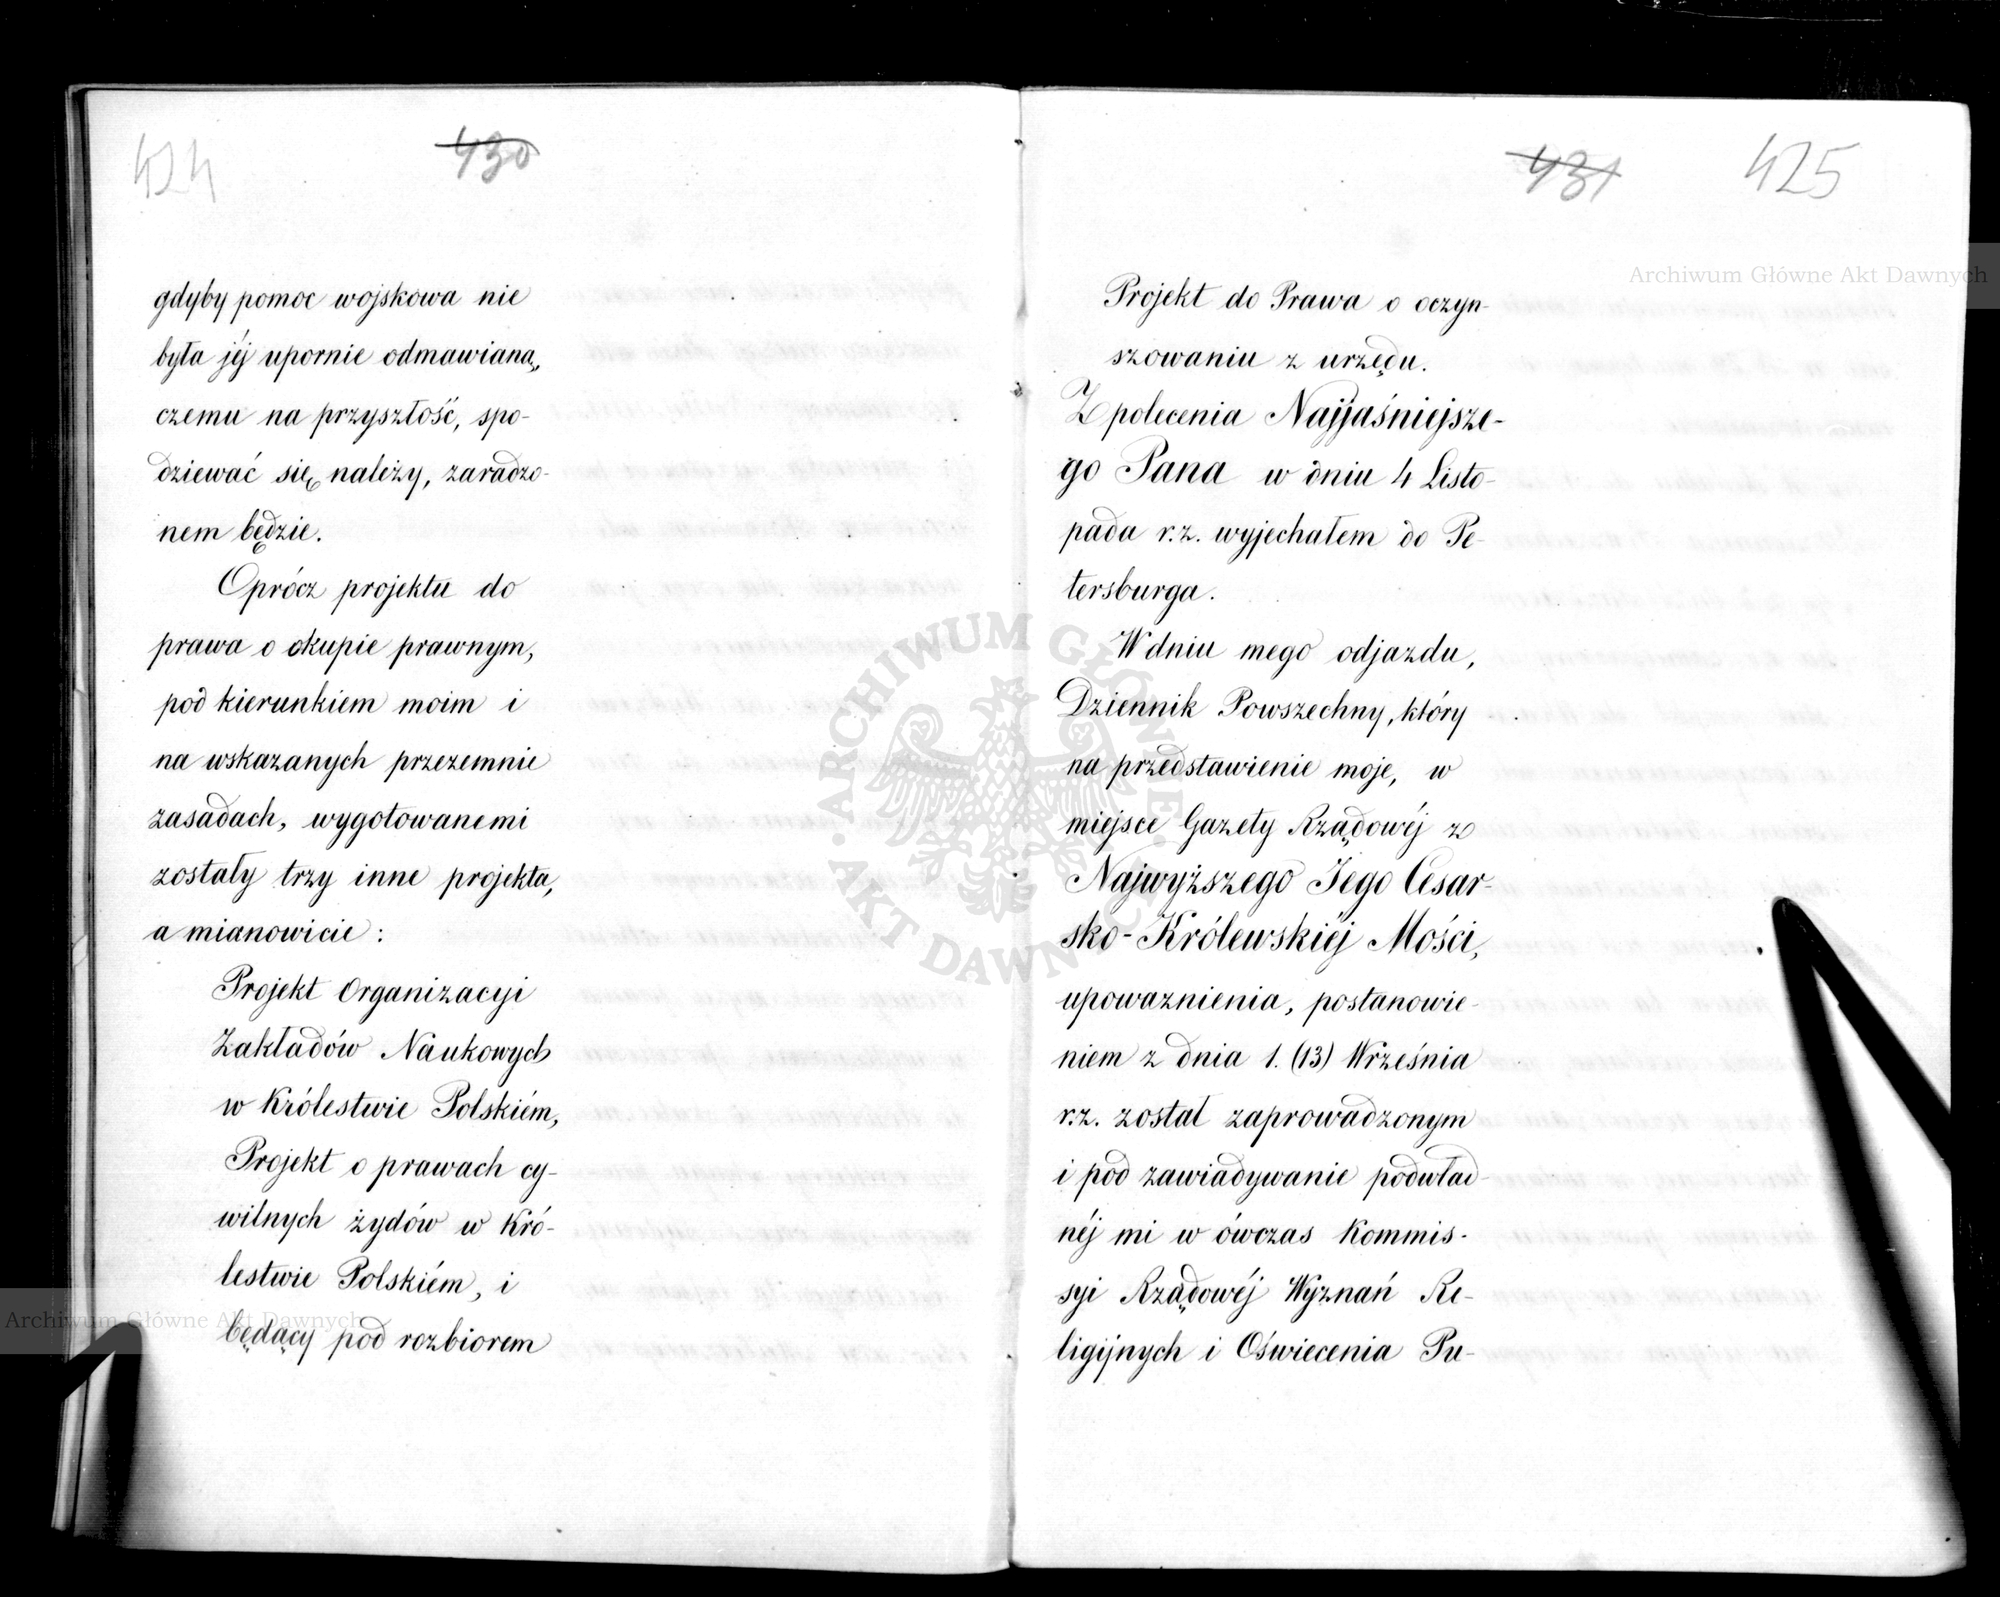 424
430
gdyby pomoc wojskowa nie
była jéj upornie odmawianą,
czemu na przyszłość, spo-
dziewać się należy, zaradzo-
nem będzie.
Oprócz projektu do
prawa o okupie prawnym,
pod kierunkiem moim i
na wskazanych przezemnie
zasadach, wygotowanemi
zostały trzy inne projekta,
a mianowicie:
Projekt Organizacyi
Zakładów Naukowych
w Królestwie Polskiém,
Projekt o prawach cy-
wilnych żydów w Kró-
lestwie Polskiém, i
będący pod rozbiorem
431
425
Projekt do Prawa o oczyn-
szowaniu z urzędu.
Z polecenia Najjaśniejsze-
go Pana w dniu 4 Listo-
pada r.z. wyjechałem do Pe-
tersburga.
W dniu mego odjazdu,
Dziennik Powszechny, który
na przedstawienie moje, w
miejsce Gazety Rządowéj z
Najwyższego Jego Cesar-
sko-Królewskiéj Mości,
upoważnienia, postanowie-
niem z dnia 1. (13) Września
r.z. został zaprowadzonym
i pod zawiadywanie podwład-
néj mi w ówczas Kommis-
syi Rządowéj Wyznań Re-
ligijnych i Oświecenia Pu-
Archiwum Główne Akt Dawnych
Archiwum Główne Akt Dawnych
ARCHIWUM GŁÓWNE AKT DAWNYCH